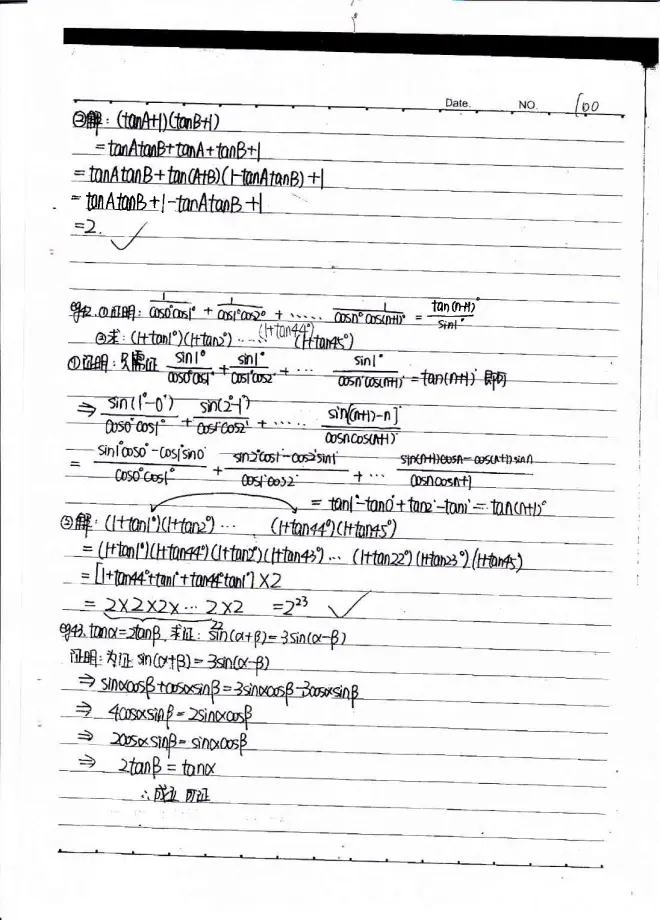 Date. NO. 100
②解：(tanA+1)(tanB+1)
=tanAtanB+tanA+tanB+1
=tanAtanB+tan(A+B)(1-tanAtanB)+1
=tanAtanB+1-tanAtanB+1
=2.
eg42.①证明：1/cos0°cos1° + 1/cos1°cos2° + ...... 1/cosn°cos(n+1)° = tan(n+1)°/sin1°
②求：(1+tan1°)(1+tan2°)......(1+tan44°)(1+tan45°)
①证明：只需证 sin1°/cos0°cos1° + sin1°/cos1°cos2° + ... sin1°/cosn°cos(n+1)° = tan(n+1)° 即可
⇒ sin(1°-0°)/cos0°cos1° + sin(2°-1°)/cos1°cos2° + ...... sin[(n+1)-n]°/cosncos(n+1)°
= sin1°cos0°-cos1°sin0°/cos0°cos1° + sin2°cos1°-cos2°sin1°/cos1°cos2° + ... sin(n+1)cosn-cos(n+1)sinn/cosncosn+1
= tan1°-tan0°+tan2°-tan1°=...tan(n+1)°
②解：(1+tan1°)(1+tan2°)... (1+tan44°)(1+tan45°)
=(1+tan1°)(1+tan44°)(1+tan2°)(1+tan43°)...(1+tan22°)(1+tan23°)(1+tan45°)
=[1+tan44°+tan1°+tan44°tan1°]×2
= 2×2×2×...2×2 =2^23
22
eg43.tanα=2tanβ,求证：sin(α+β)=3sin(α-β)
证明：为证 sin(α+β)=3sin(α-β)
⇒ sinαcosβ+cosαsinβ=3sinαcosβ-3cosαsinβ
⇒ 4cosαsinβ=2sinαcosβ
⇒ 2cosαsinβ=sinαcosβ
⇒ 2tanβ=tanα
∴成立 可证